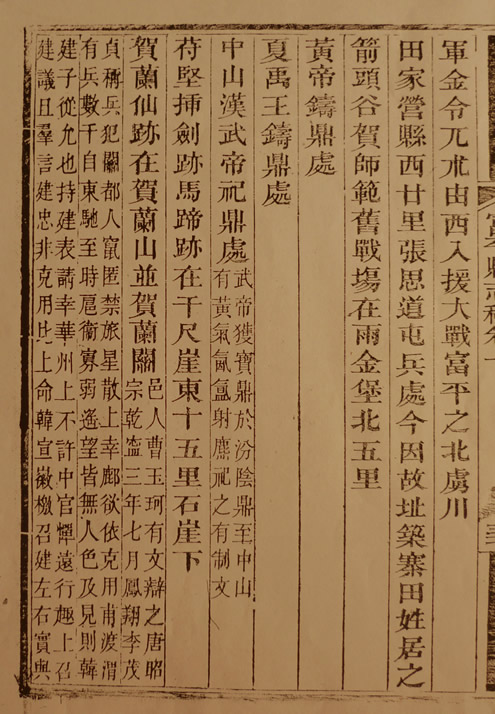 軍金令兀朮由西入援大戰富平之北虜川
田家營縣西廿里張思道屯兵處今因故址築寨田姓居之
箭頭谷賀師範舊戰塲在雨金堡北五里
黃帝鑄鼎處
夏禹王鑄鼎處
中山漢武帝祀鼎處
武帝獲寶鼎於汾陰鼎至中山
有黃氣氤氳射麃祀之有制文
苻堅揷劍跡馬蹄跡在千尺崖東十五里石崖下
賀蘭仙跡在賀蘭山並賀蘭關
邑人曹玉珂有文辯之唐昭
宗乾寧三年七月鳳翔李茂
貞稱兵犯闕都人竄匿禁旅星散上幸鄜欲依克用甫渡渭
有兵數千自東馳至時扈衛寡弱遙望皆無人色及見則韓
建子從允也持建表請幸華州上不許中官憚遠行趣上召
建議且羣言建忠非克用比上命韓宣徽檄召建左右實與